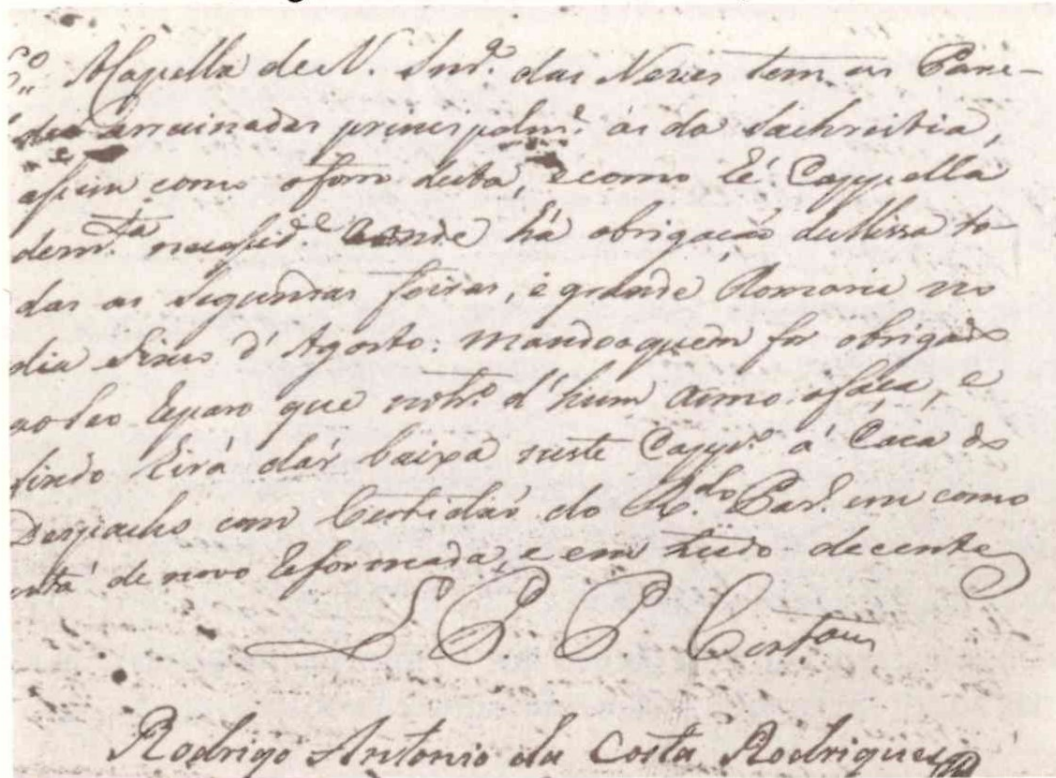 A Capella de N. Snr.ª das Neves tem as Pare-
des arruinadas principalm.e ás da Sachristia,
assim como o forro desta, e como hé Cappella
de m.ta necessid.e aonde há obrigação de Missa to-
das as Segundas feiras, e grande Romaria no
dia Sinco d'Agosto: mando a quem for obrigado
ao Seo Reparo que no tr.º d'hum anno o fáça, e
findo hirá dár baixa neste Capp.º á Caza do
Despacho com Certidão do R.do Par.º em como
está de novo Reformada, e em tudo decente
Rodrigo Antonio da Costa Rodrigues